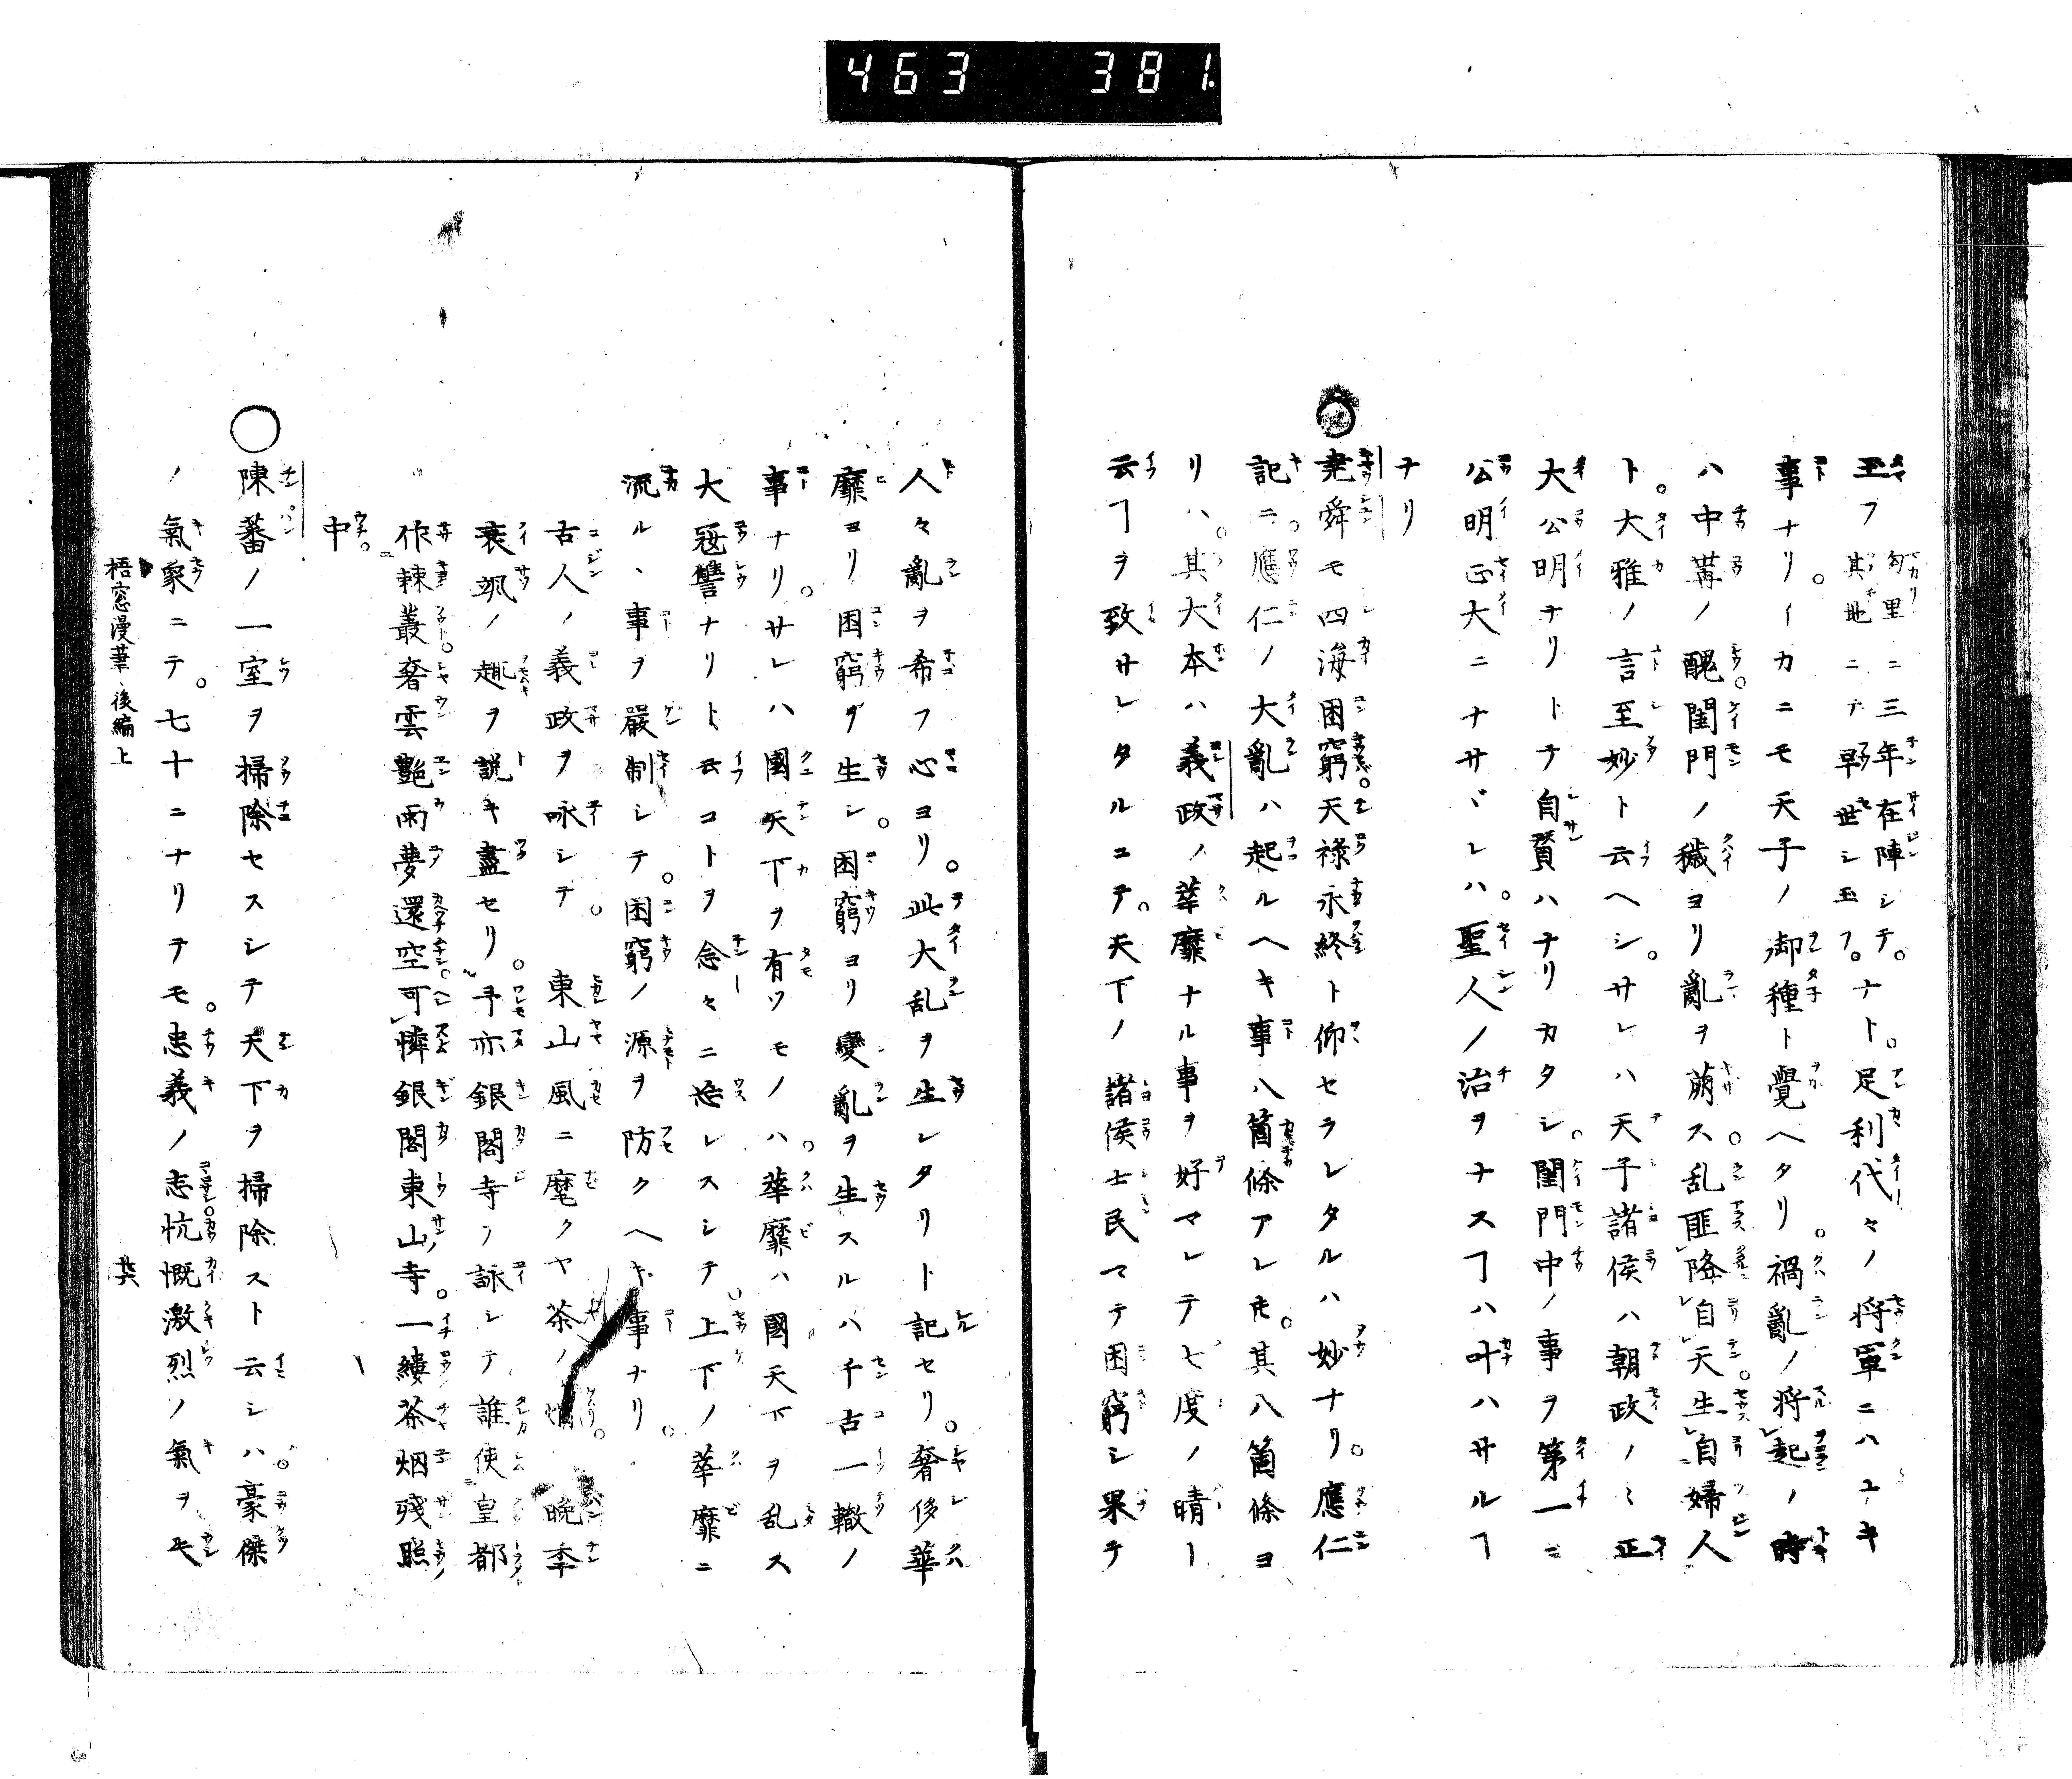 463 381
玉フ 勾里ニ三年在陣シテ。ナト。足利代々ノ将軍ニハユキ
其地ニテ早世シ玉フ。
事ナリ。イカニモ天子ノ御種ト覺ヘタリ。禍亂ノ将起ノ時
ハ中冓ノ醜。閨門ノ穢ヨリ亂ヲ萠ス。乱匪降自天。生自婦人
ト。大雅ノ言至妙ト云ヘシ。サレハ天子諸侯ハ朝政ノミ正
大公明ナリトテ自賛ハナリカタシ。閨門中ノ事ヲ第一ニ
公明正大ニナサヾレハ。聖人ノ治ヲナスヿハ叶ハサルヿ
ナリ
○堯舜モ四海困窮。天祿永終ト仰セラレタルハ妙ナリ。應仁
記ニ。應仁ノ大亂ハ起ルヘキ事八箇條アレ𪜈。其八箇條ヨ
リハ。其大本ハ義政ノ華靡ナル事ヲ好マレテ七度ノ晴ー
云ヿヲ致サレタルユヱ。天下ノ諸侯士民マテ困窮シ果テ
人々亂ヲ希フ心ヨリ。此大乱ヲ生レタリト記セリ。奢侈華
靡ヨリ困窮ヲ生シ。困窮ヨリ變亂ヲ生スルハ千古一轍ノ
事ナリ。サレハ國天下ヲ有ツモノハ。華靡ハ國天下ヲ乱ス
大寇讐ナリト云コトヲ念々ニ忘レスシテ。上下ノ華靡ニ
流ル、事ヲ嚴制シテ。困窮ノ源ヲ防クヘキ事ナリ。
古人ノ義政ヲ咏シテ。 東山風ニ麾クヤ茶ノ烟。 晩季
衰颯ノ趣ヲ説キ盡セリ。予亦銀閣寺ノ詠シテ誰使皇都
作棘叢。奢雲艶雨夢還空。可憐銀閣東山寺。一縷茶烟殘照
中。
○陳蕃ノ一室ヲ掃除セスシテ天下ヲ掃除スト云シハ。豪傑
ノ氣象ニテ。七十ニナリテモ。忠義ノ志忼慨激烈ノ氣ヲモ
梧窓漫筆後編上 廿六